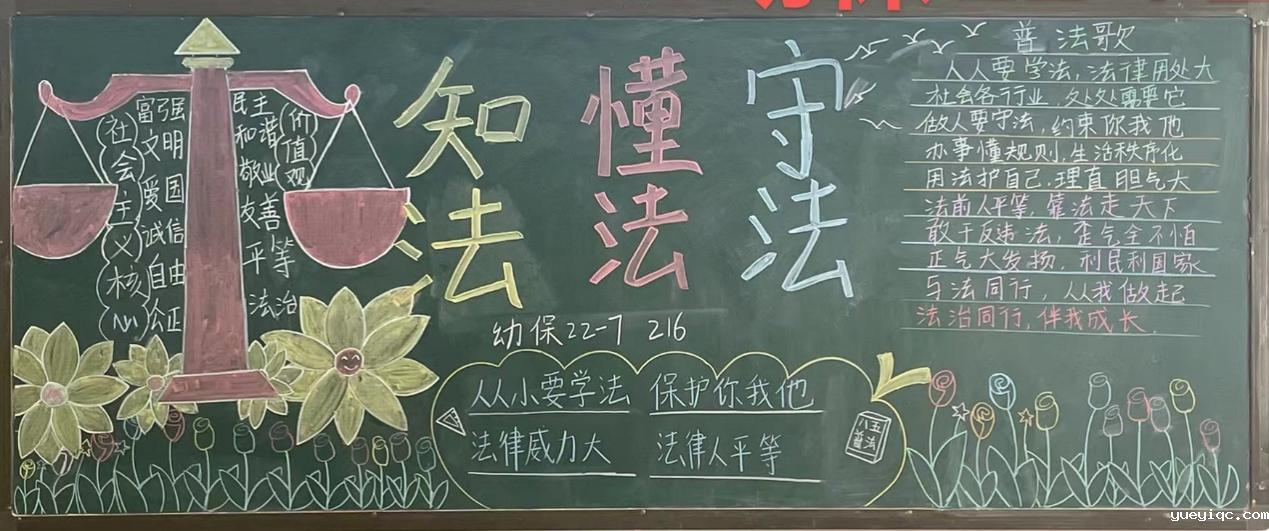 社会主义核心
富强
文明
爱国
诚信
自由
公正
民主
和谐
敬业
友善
平等
法治
价值观
知法
懂法
守法
幼保22-7 216
人人小要学法 保护你我他
法律威力大 法律人平等
八五
普法
普法歌
人人要学法,法律用处大
社会各行业,处处需要它
做人要守法,约束你我他
办事懂规则,生活秩序化
用法护自己,理直胆气大
法前人平等,靠法走天下
敢于反违法,歪气全不怕
正气大发扬,利民利国家
与法同行,从我做起
法治同行,伴我成长.
yueyiqc.com